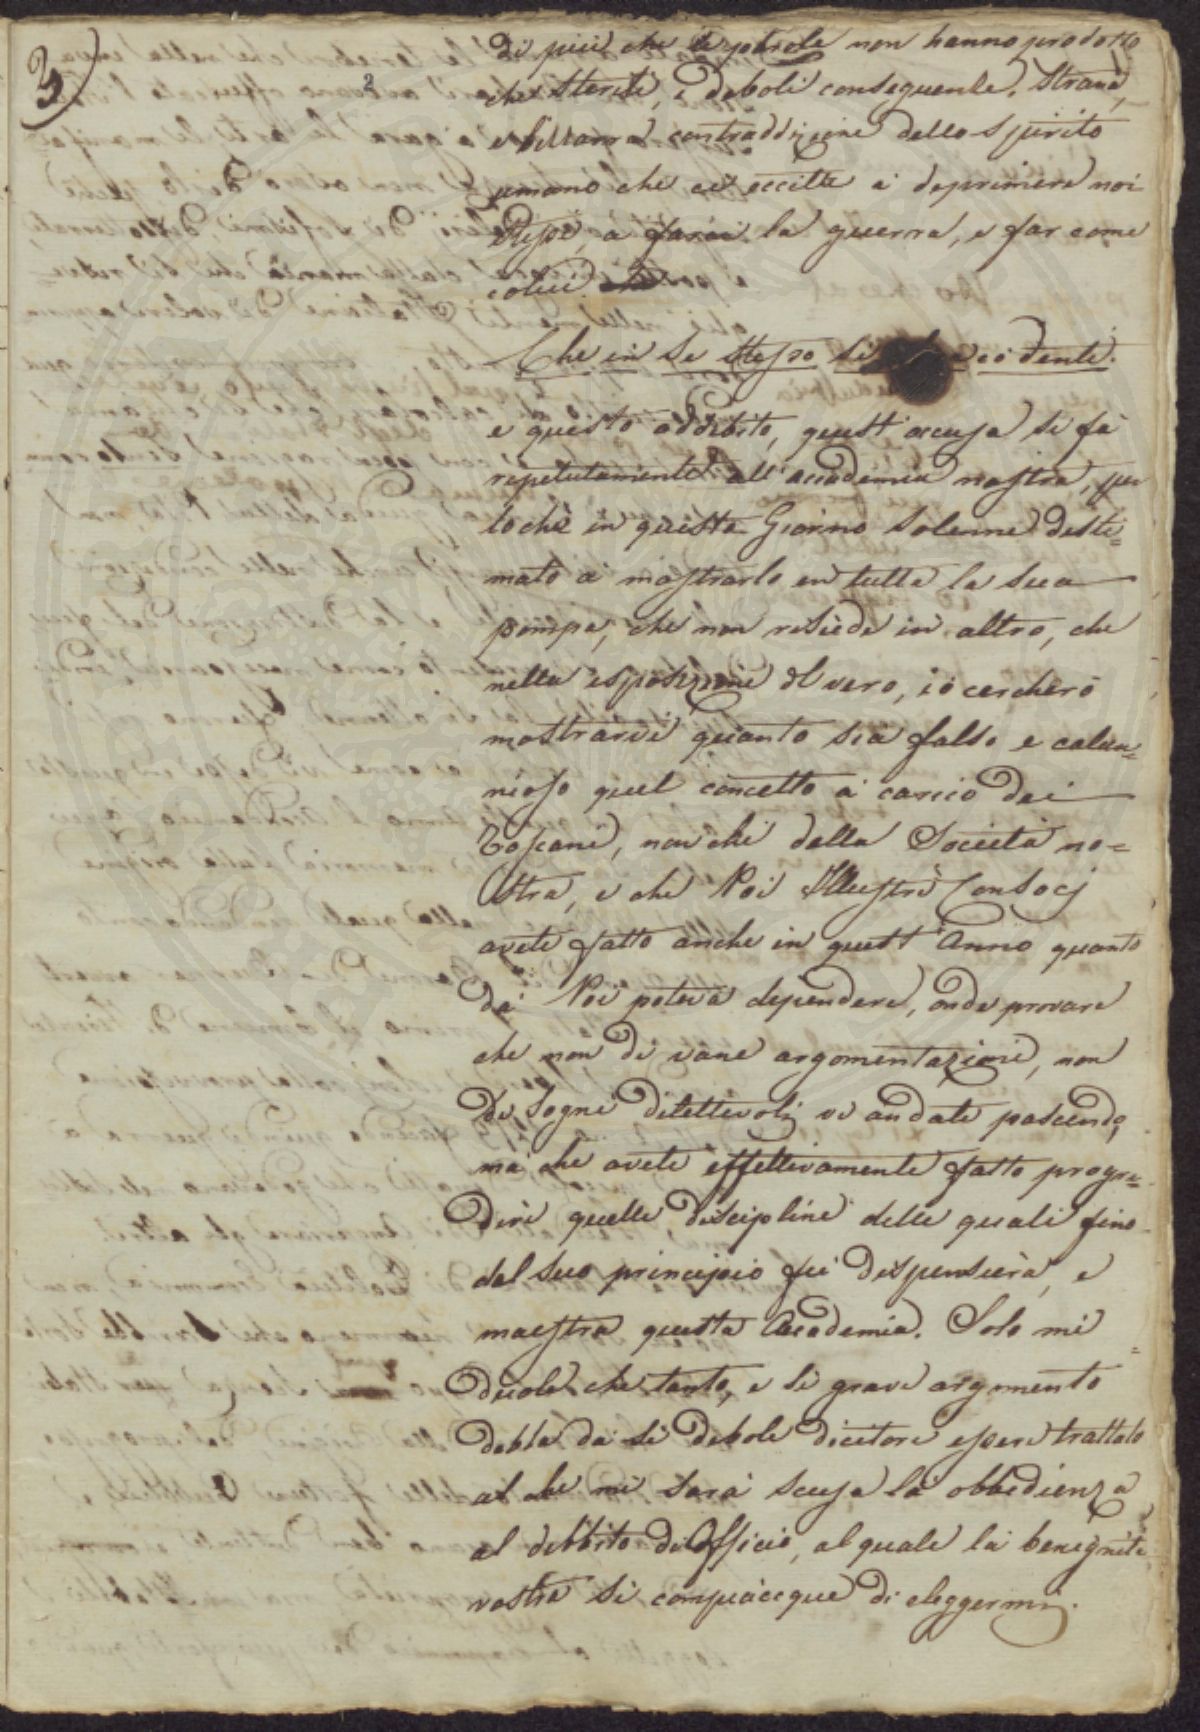 3)
2
di più che le parole non hanno prodotto
che sterili, e deboli conseguenze. Strana,
e bizzarra contraddizione dello Spirito
umano che ci eccita a deprimere noi
stessi, a farci la guerra, e far come
colui che
Che in se stesso si coi denti.
e questo addebito, quest'accusa si fà
repetutamente all'accademia nostra, per
lochè in questo Giorno Solenne desti=
nato a mostrarlo in tutta la sua
pompa, che non risiede in altro, che
nella esposizione del vero, io cercherò
mostrarvi quanto sia falso e calun=
nioso quel concetto a carico dei
Toscani, non che della Società no=
stra, e che Voi Illustri Consocj
avete fatto anche in quest'Anno quanto
da Voi poteva dependere, onde provare
che non di vane argomentazioni, non
di sogni dilettevoli vi andate pascendo,
ma che avete effettivamente fatto progre=
dire quelle discipline delle quali fino
dal suo principio fù dispensiera, e
maestra questa Accademia. Solo mi
duole che tanto, e si grave argomento
debba da sì debole dicitore essere trattato
al che mi sarà scusa la obbedienza
al debbito di Officio, al quale la benignità
vostra si compiacque di eleggermi.